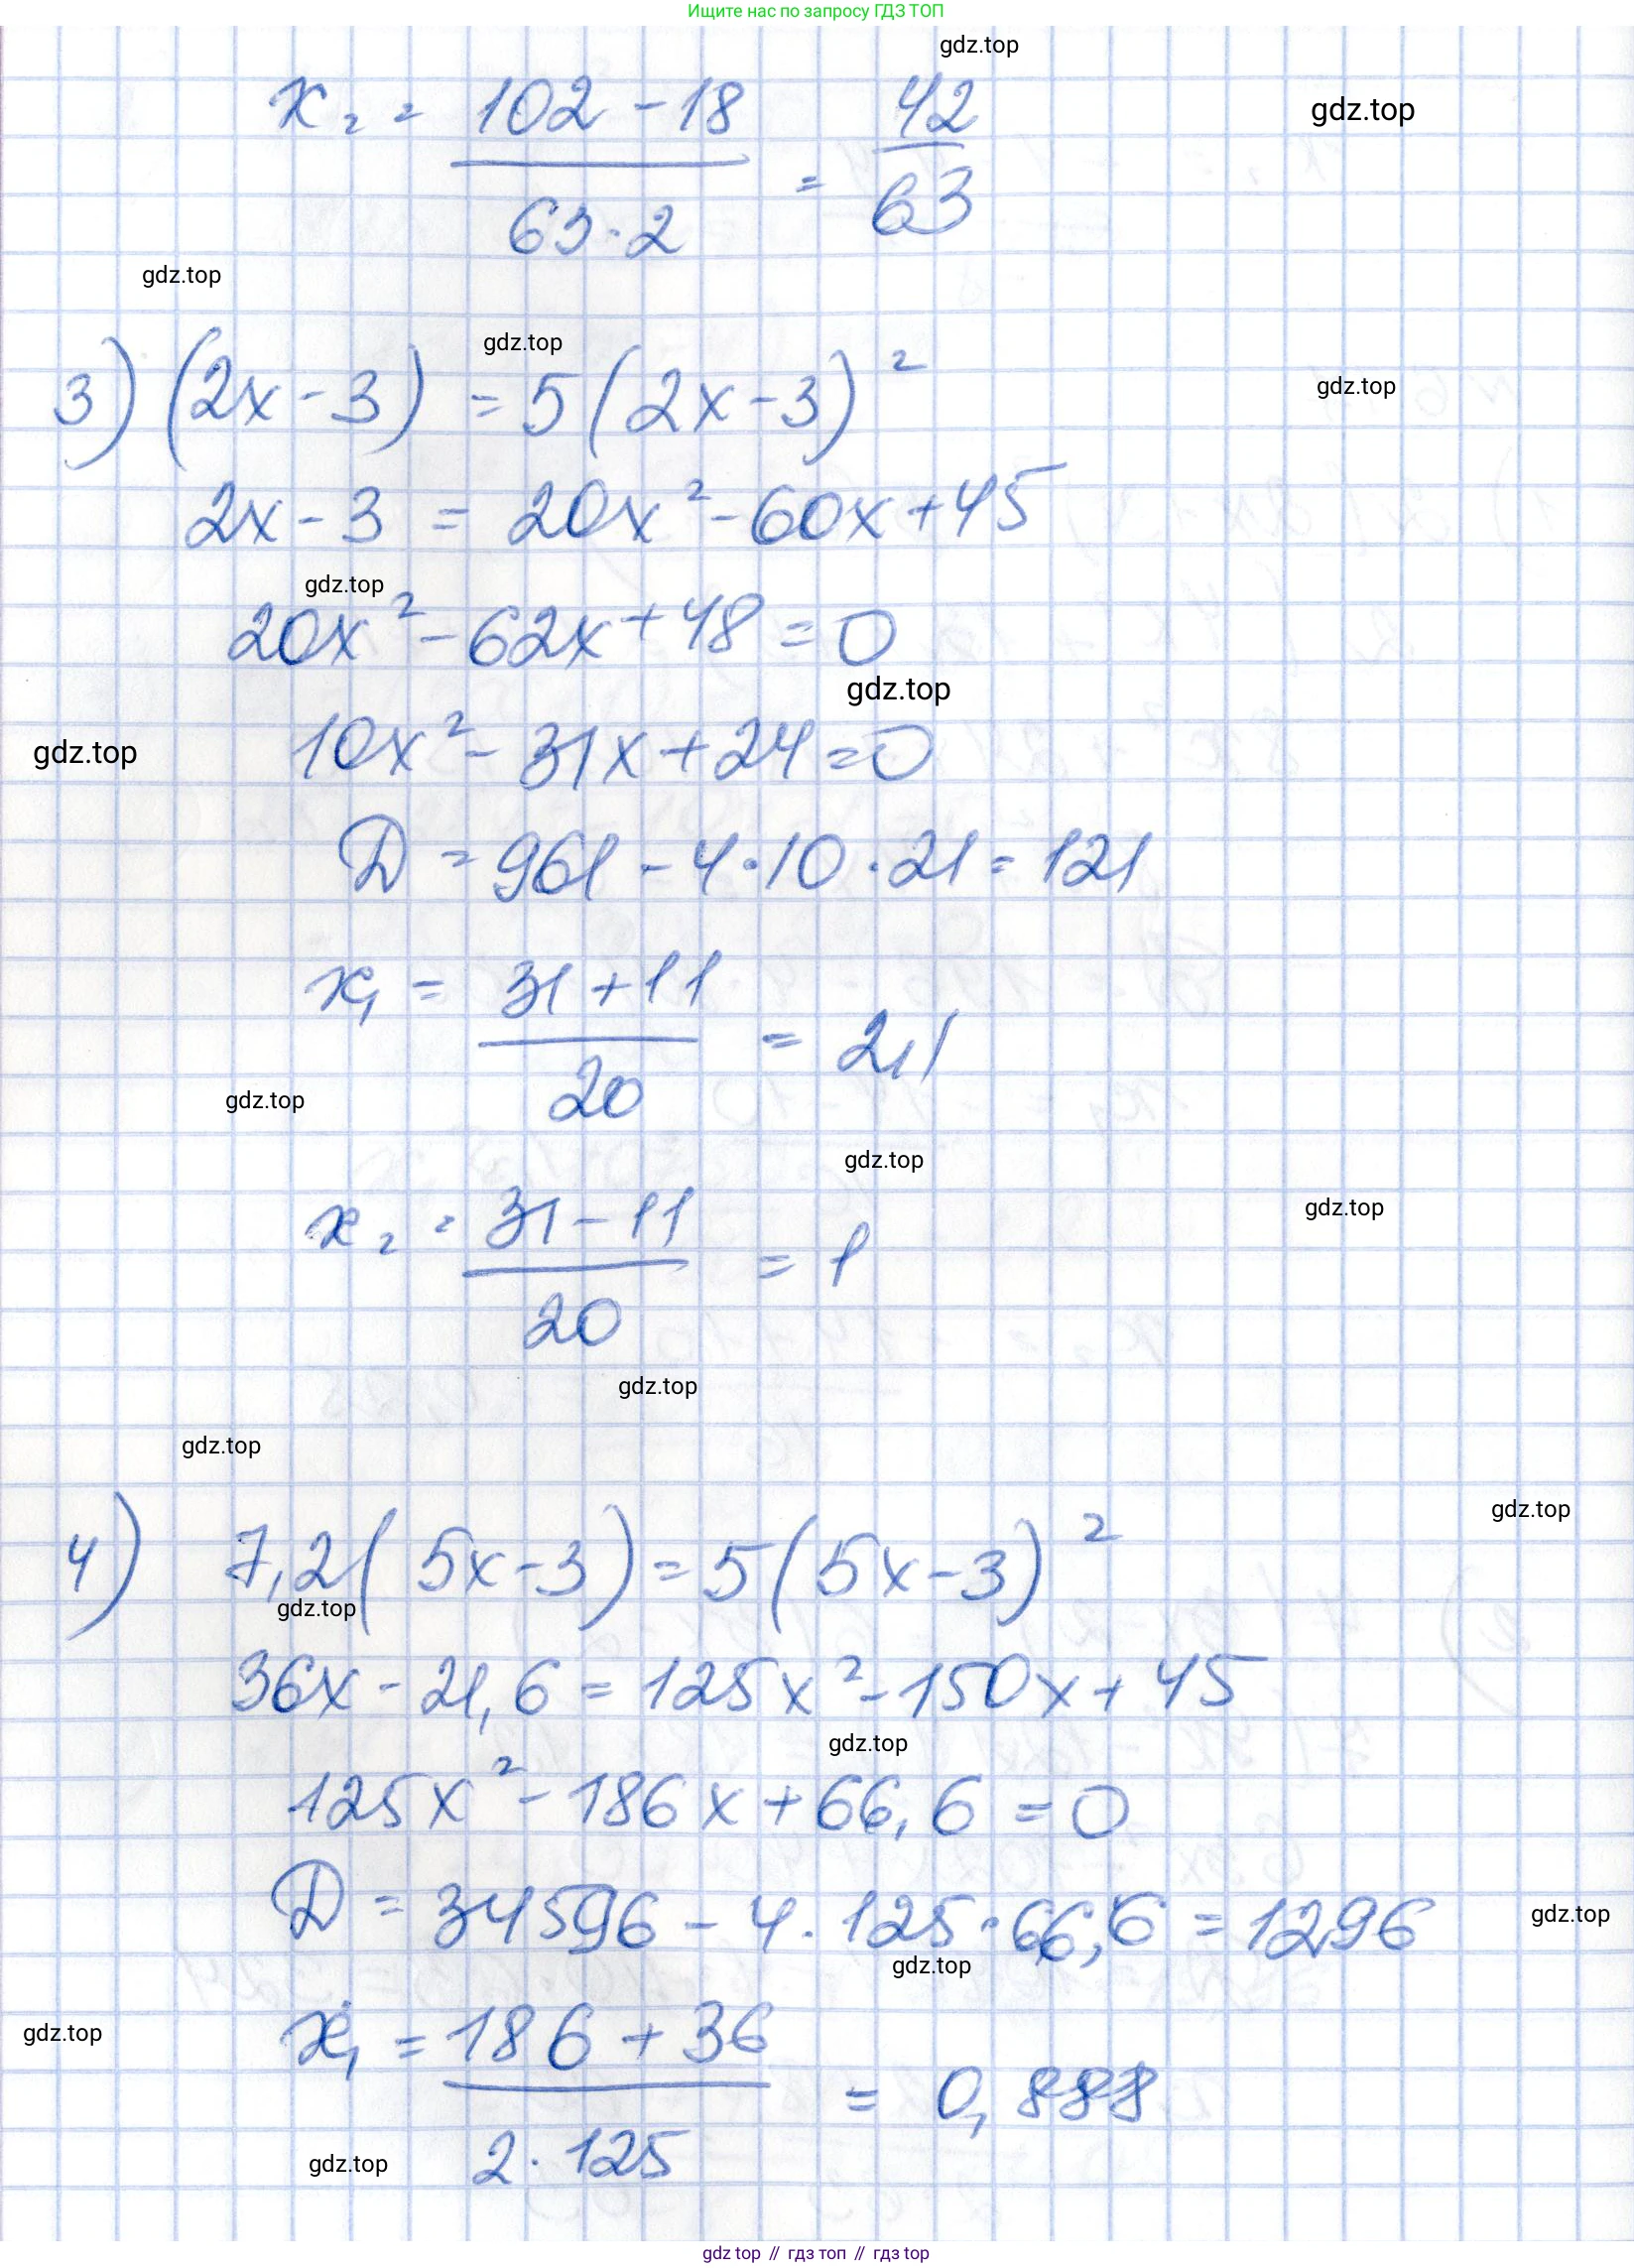 Ищите нас по запросу ГДЗ ТОП
gdz.top
x₂ = (102 - 18)/(63 · 2) = 42/63
gdz.top
gdz.top
gdz.top
3) (2x - 3) = 5(2x - 3)²
gdz.top
2x - 3 = 20x² - 60x + 45
gdz.top
20x² - 62x + 48 = 0
gdz.top
10x² - 31x + 24 = 0
gdz.top
D = 961 - 4 · 10 · 21 = 121
x₁ = (31 + 11)/20 = 2,1
gdz.top
gdz.top
x₂ = (31 - 11)/20 = 1
gdz.top
gdz.top
gdz.top
gdz.top
4) 7,2(5x - 3) = 5(5x - 3)²
gdz.top
36x - 21,6 = 125x² - 150x + 45
gdz.top
125x² - 186x + 66,6 = 0
D = 34596 - 4 · 125 · 66,6 = 1296
gdz.top
gdz.top
gdz.top
x₁ = (186 + 36)/(2 · 125) = 0,888
gdz.top
gdz top // гдз топ // гдз top